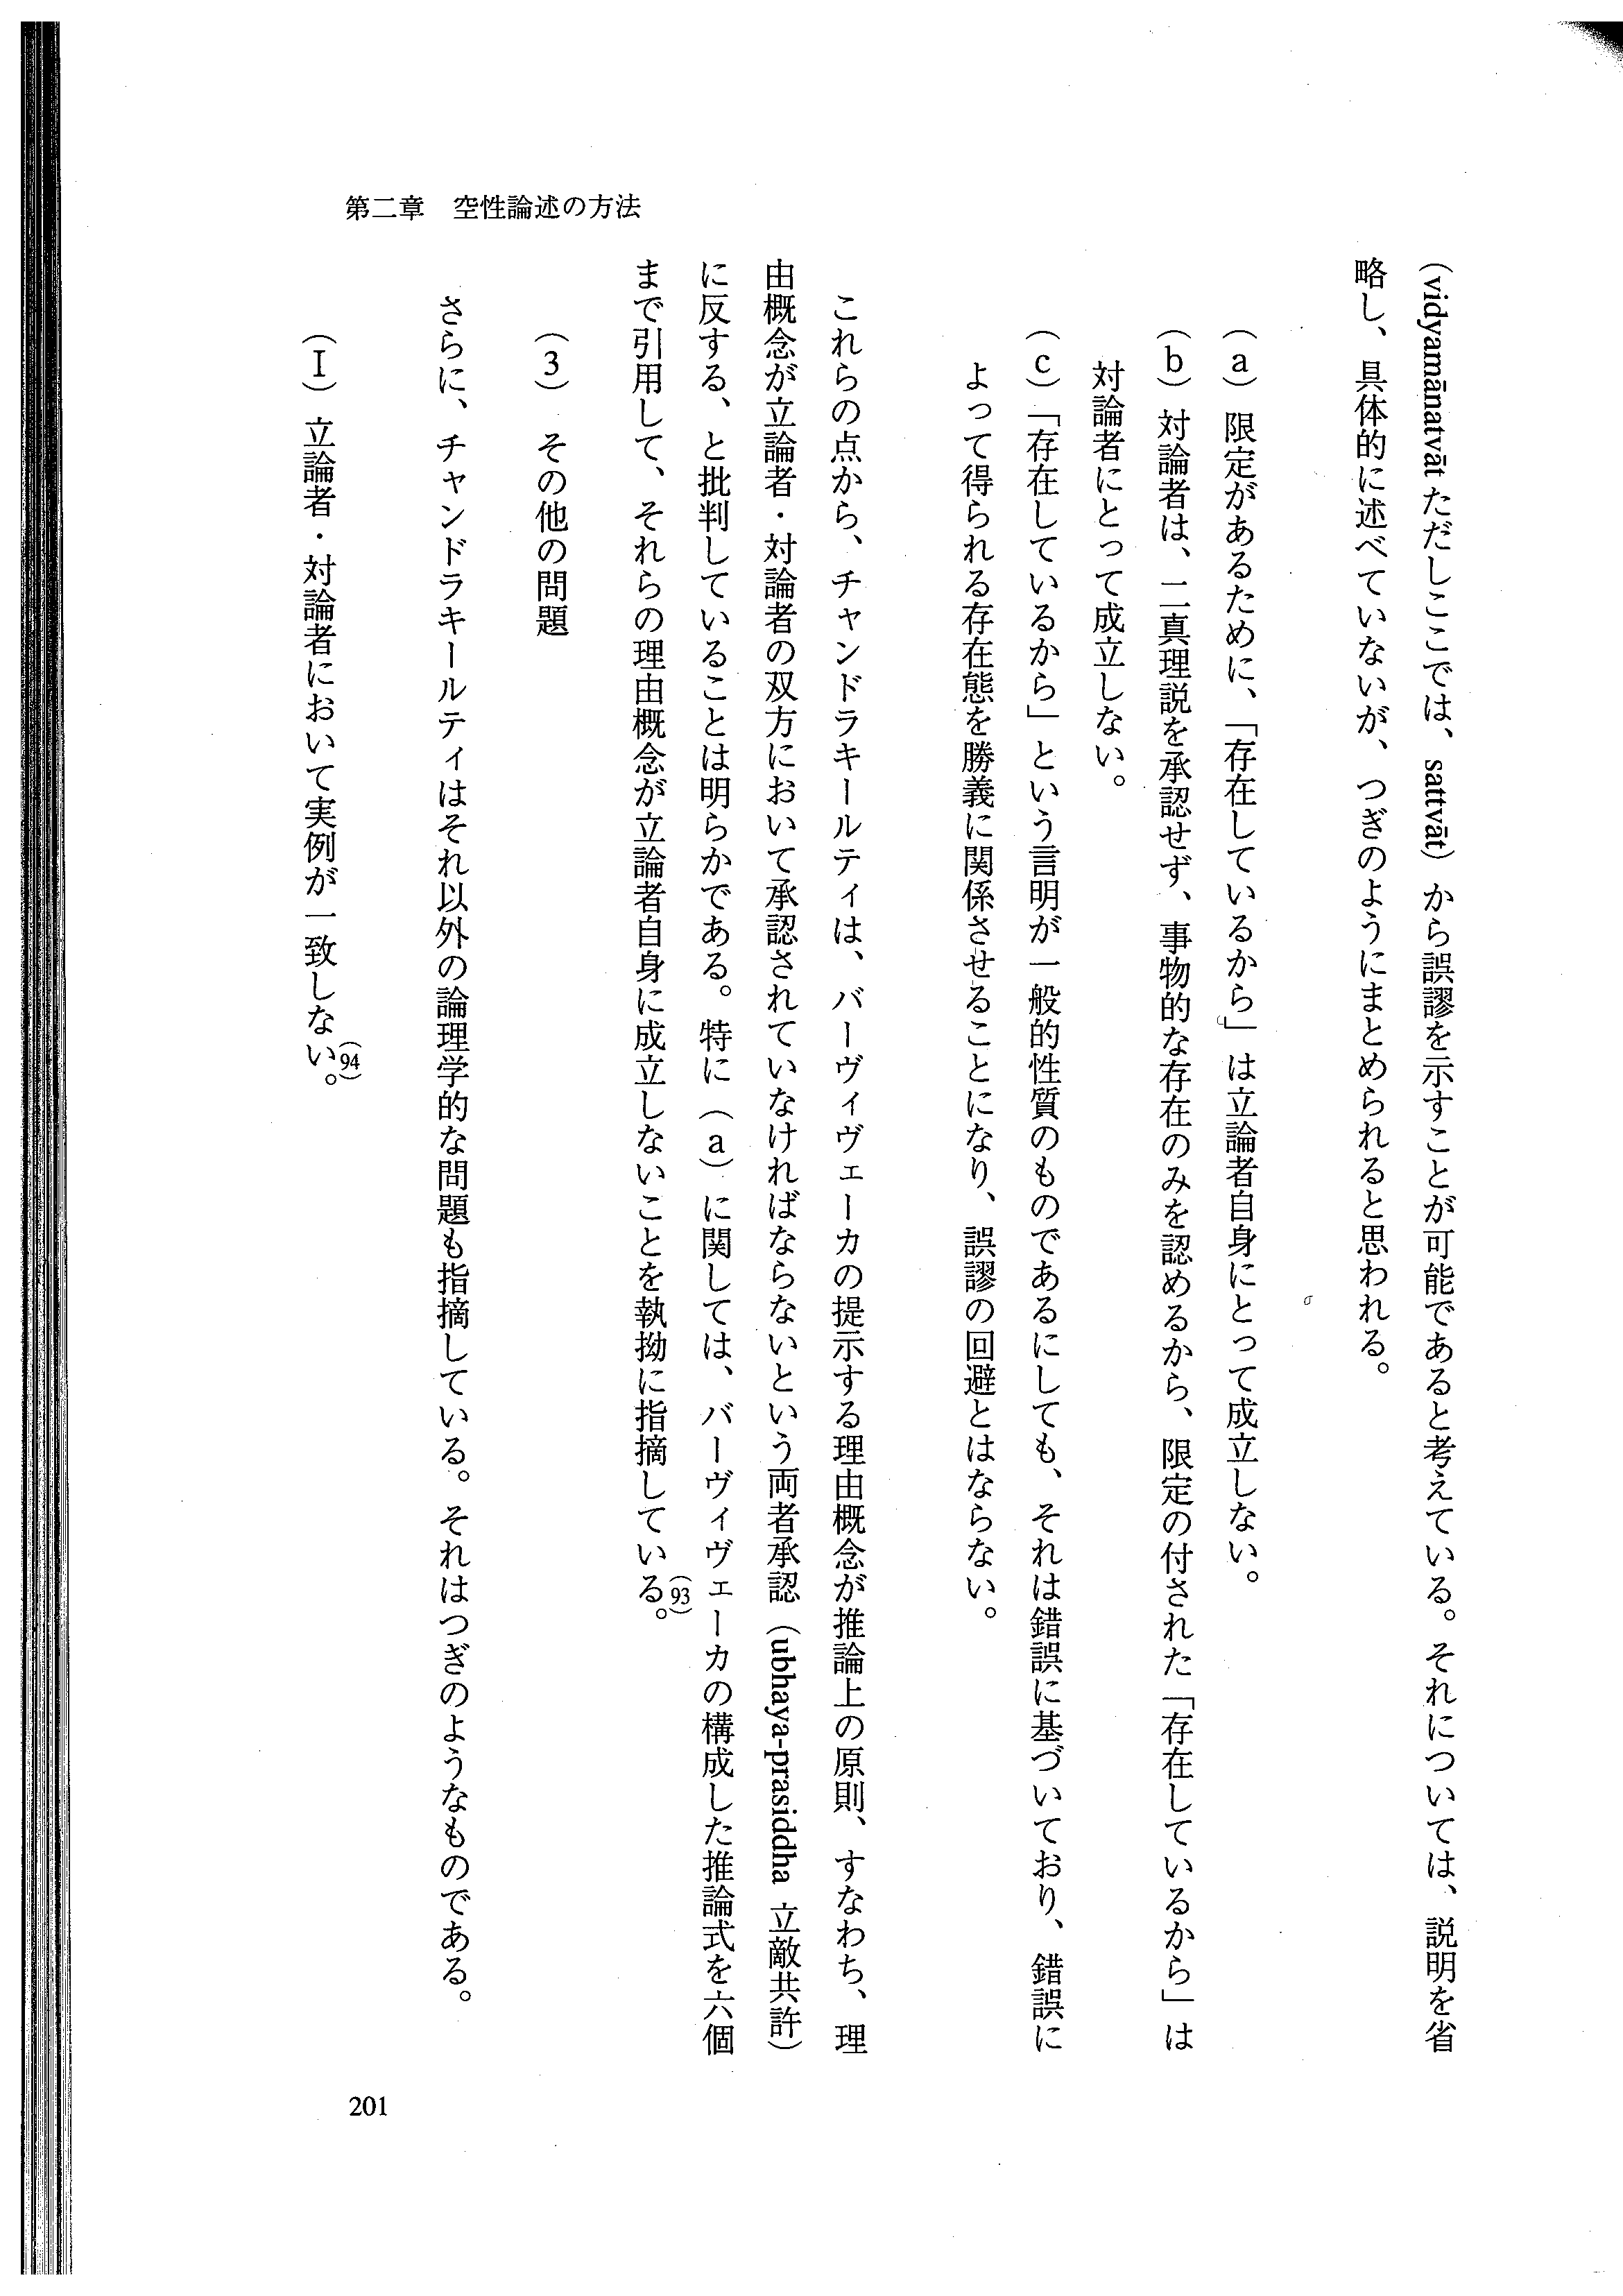 第二章　空性論述の方法
（vidyamānatvāt ただしここでは、sattvāt）から誤謬を示すことが可能であると考えている。それについては、説明を省
略し、具体的に述べていないが、つぎのようにまとめられると思われる。
（a）限定があるために、「存在しているから」は立論者自身にとって成立しない。
（b）対論者は、二真理説を承認せず、事物的な存在のみを認めるから、限定の付された「存在しているから」は
対論者にとって成立しない。
（c）「存在しているから」という言明が一般的性質のものであるにしても、それは錯誤に基づいており、錯誤に
よって得られる存在態を勝義に関係させることになり、誤謬の回避とはならない。
これらの点から、チャンドラキールティは、バーヴィヴェーカの提示する理由概念が推論上の原則、すなわち、理
由概念が立論者・対論者の双方において承認されていなければならないという両者承認（ubhaya-prasiddha 立敵共許）
に反する、と批判していることは明らかである。特に（a）に関しては、バーヴィヴェーカの構成した推論式を六個
まで引用して、それらの理由概念が立論者自身に成立しないことを執拗に指摘している。(93)
（3）その他の問題
さらに、チャンドラキールティはそれ以外の論理学的な問題も指摘している。それはつぎのようなものである。
（I）立論者・対論者において実例が一致しない。(94)
201